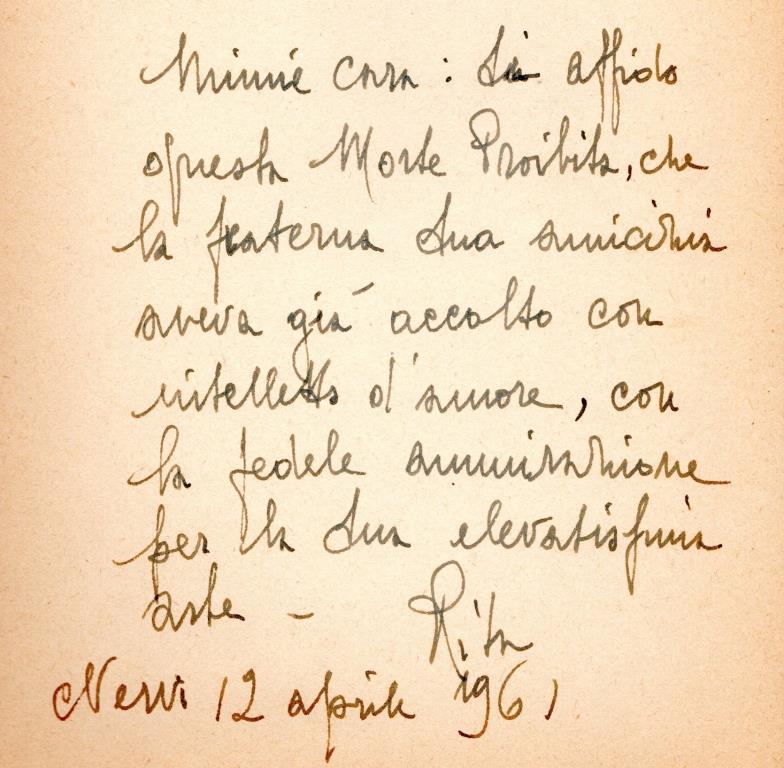 Minnie cara : ti affido
questa Morte Proibita, che
la fraterna tua amicizia
aveva già accolto con
intelletto d'amore, con
la fedele ammirazione
per la tua elevatissima
arte –
Rita
Nervi 12 aprile 1961